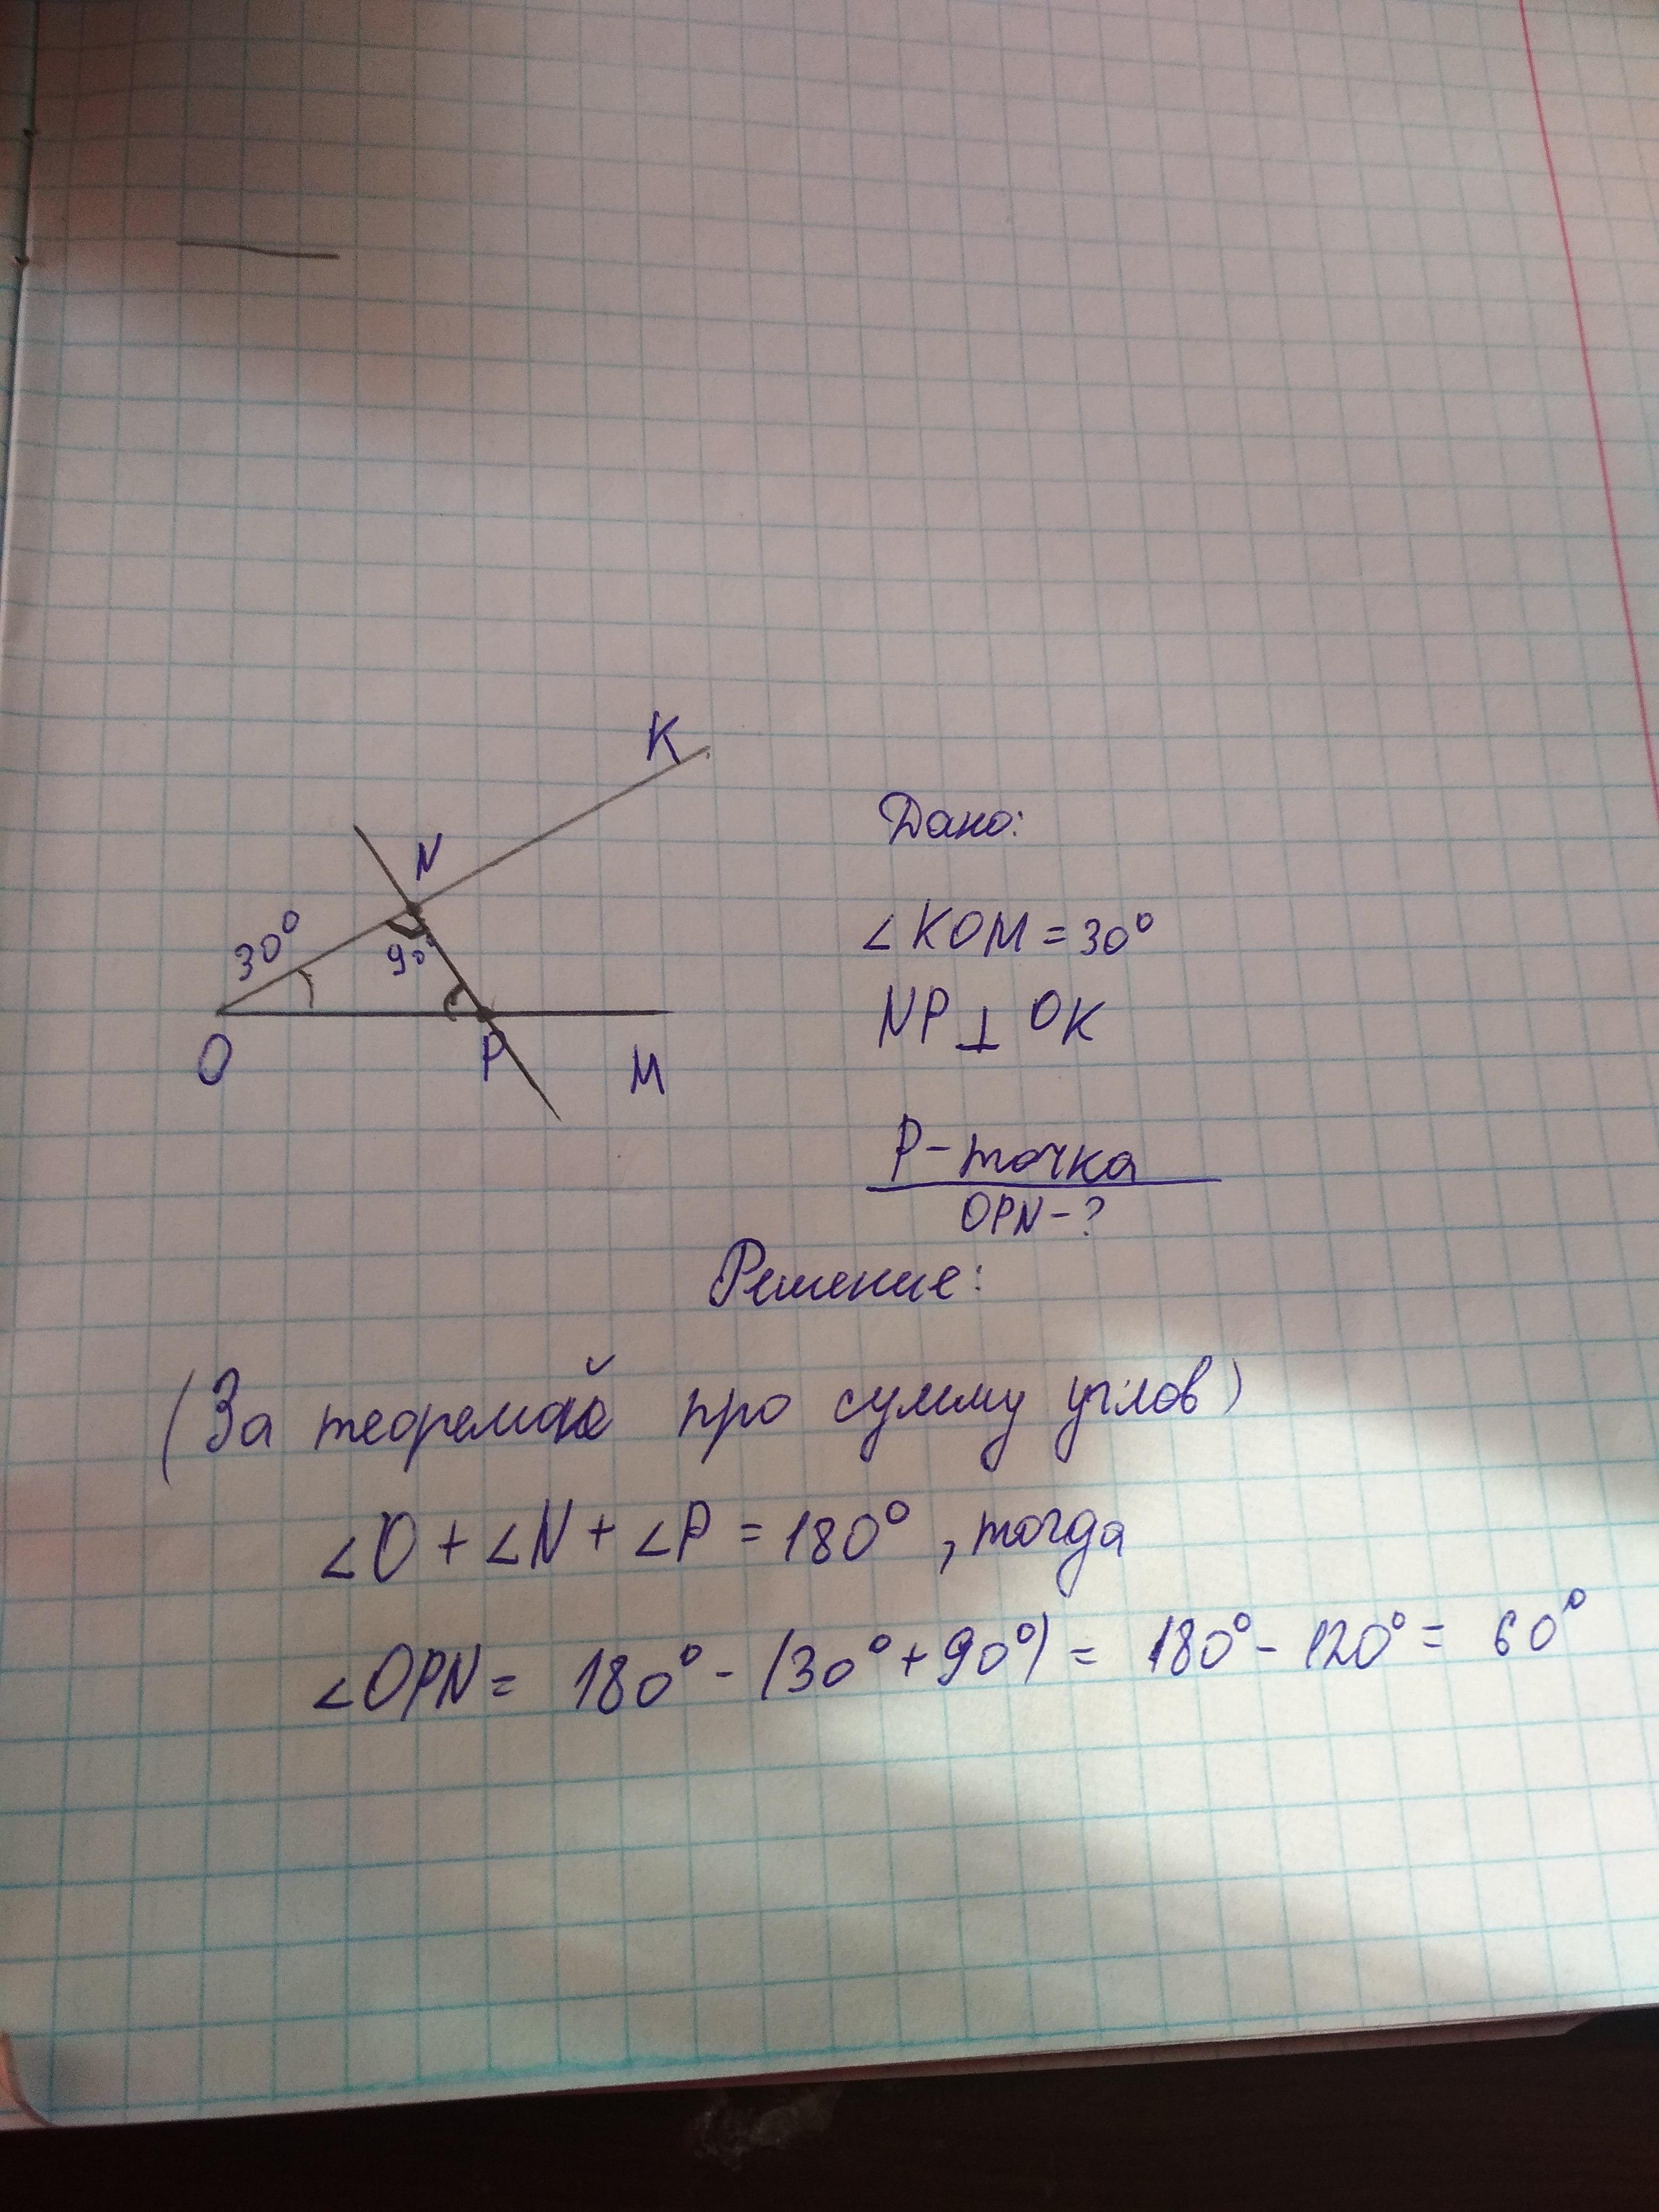 K
N
30°
90°
O
P
M
Дано:
∠KOM = 30°
NP ⊥ OK
P - точка
OPN - ?
Решение:
(За теоремой про сумму углов)
∠O + ∠N + ∠P = 180°, тогда
∠OPN = 180° - (30° + 90°) = 180° - 120° = 60°